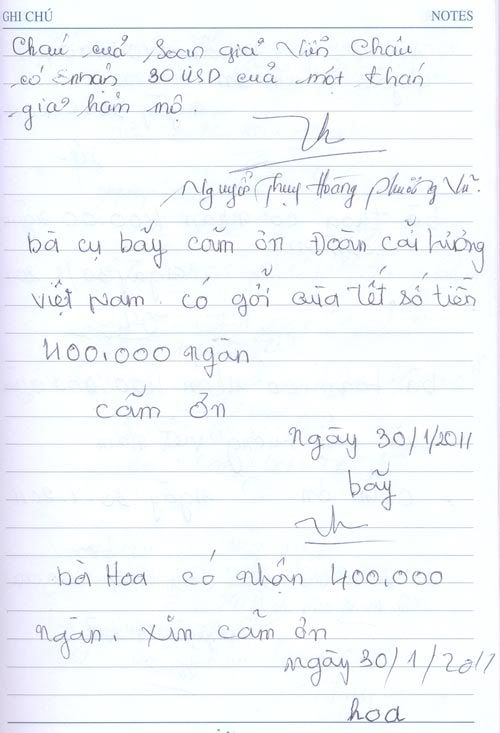 GHI CHÚ NOTES
Cháu của Soạn giả Viễn Châu
có nhận 30 USD của một thán
giả hâm mộ.
Nguyễn Thụy Hoàng Phương Vũ.
bà cụ bẫy cãm ơn Đoàn cải lương
việt Nam. có gởi của Tết số tiền
400.000 ngàn
cãm ơn
ngày 30/1/2011
bẫy
bà Hoa có nhận 400.000
ngàn. xin cãm ơn
ngày 30/1/2011
hoa